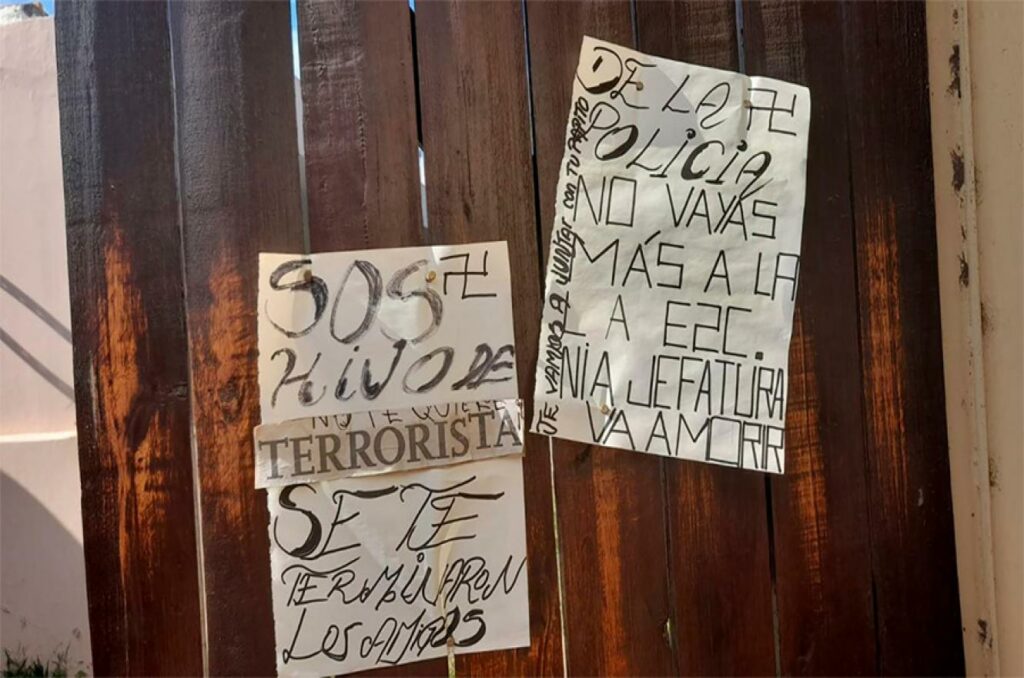 SOS
HIJO DE
NO TE QUIERE
TERRORISTA
SE TE
TERMINARON
LOS AMIGOS
DE LA
POLICIA
NO VAYAS
MÁS A LA
C A EZC.
NIA JEFATURA
VA A MORIR
TE VAMOS A JUNTAR CON TU PAPITO